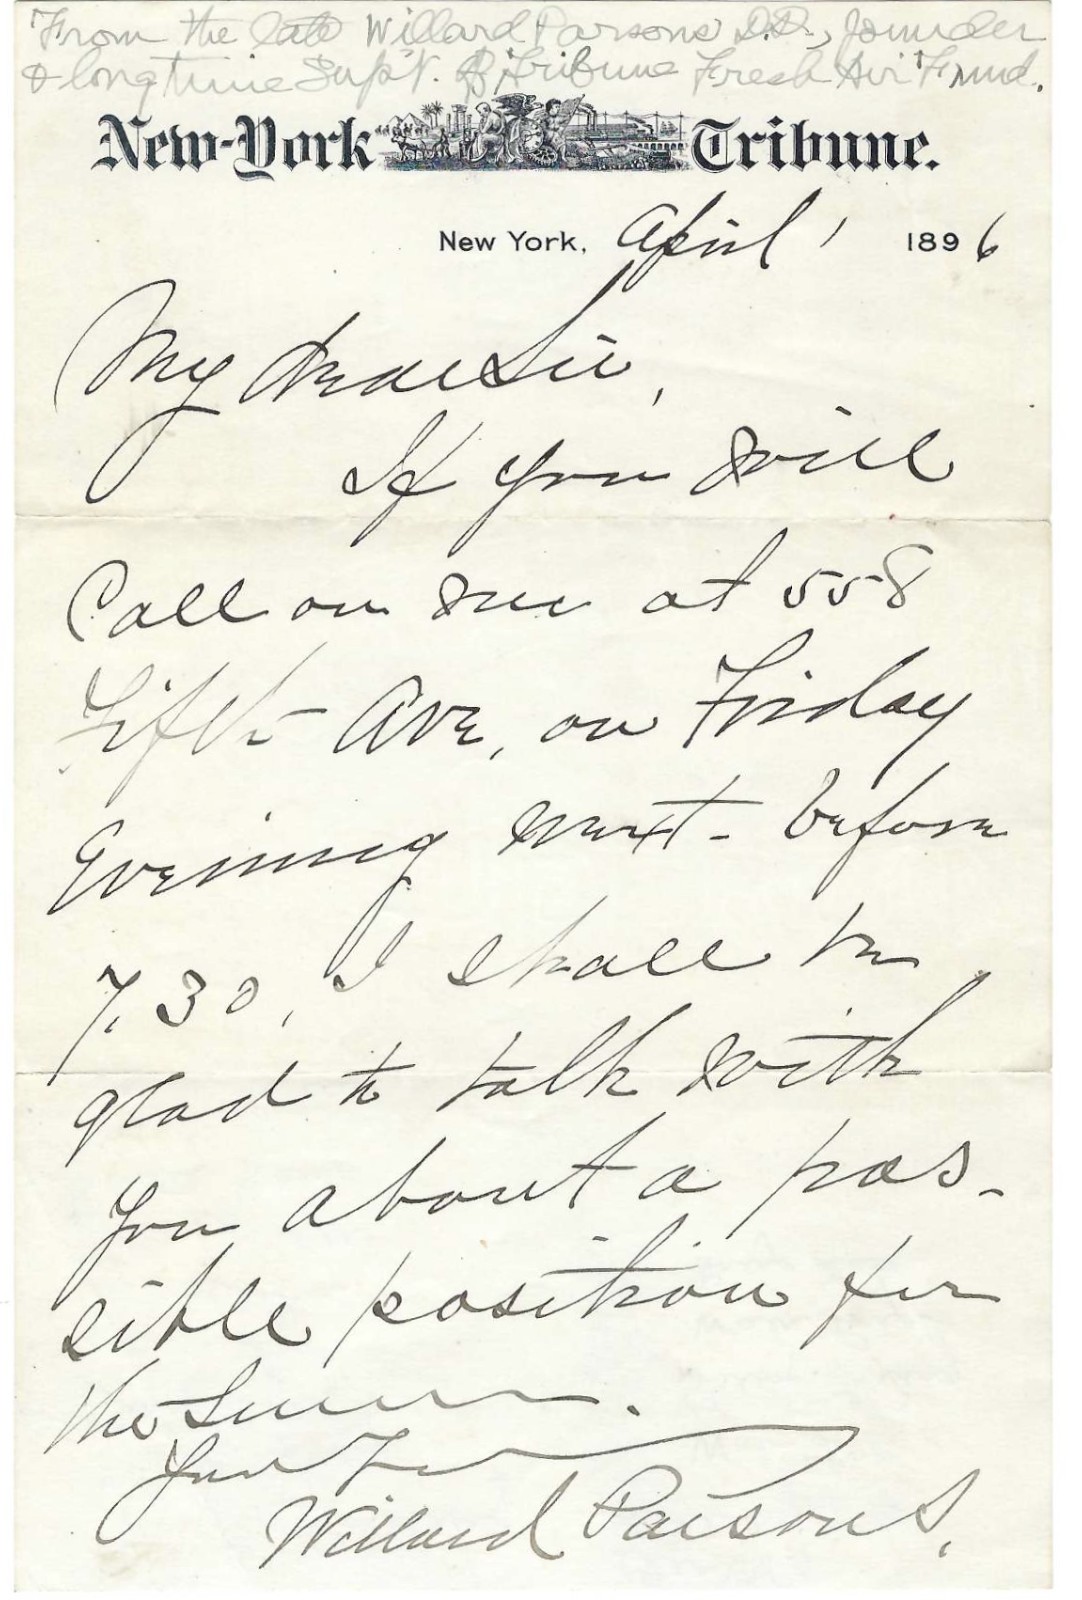 From the late Willard Parsons D.D., founder
& longtime Sup't. of Tribune Fresh Air Fund.
New-York Tribune.
New York, April 1 1896
My dear Sir,
If you will
Call on me at 558
Fifth Ave, on Friday
Evening next - before
7.30, I shall be
glad to talk with
you about a pos-
sible position for
the Summer.
Your Truly
Willard Parsons.